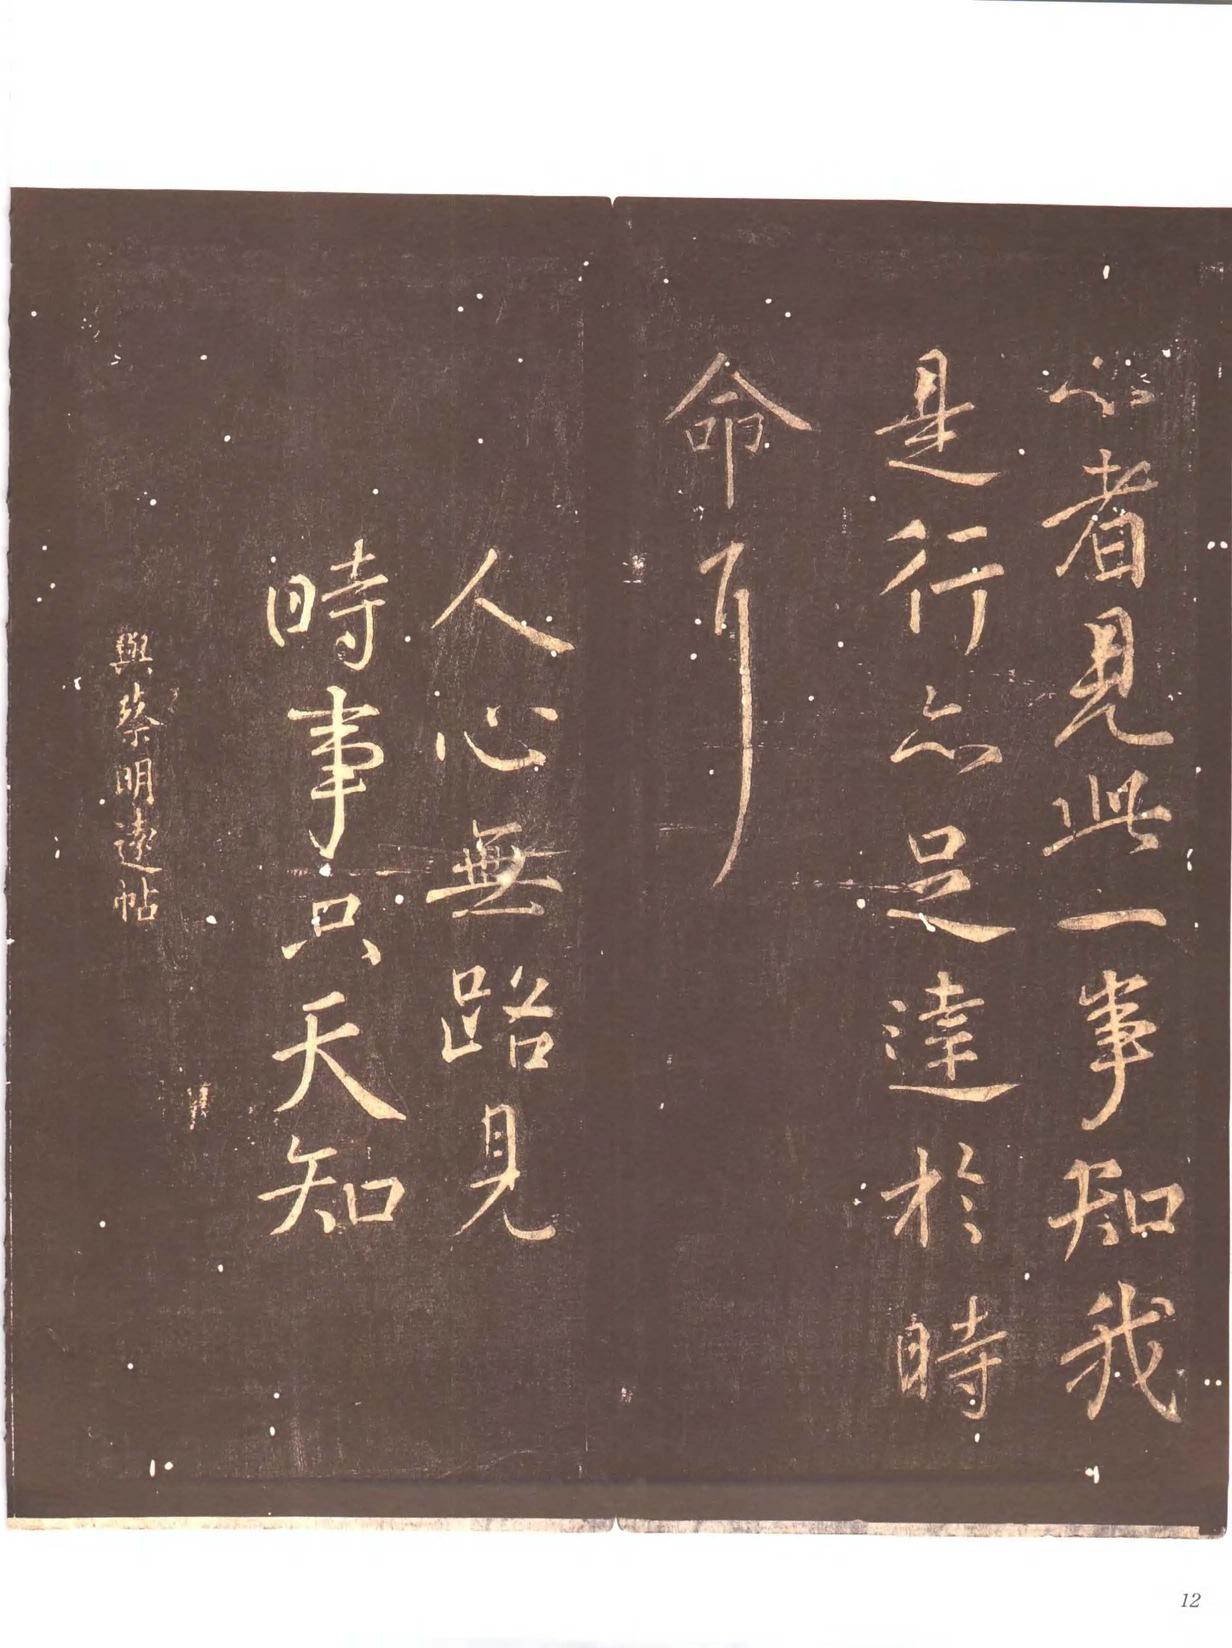 心者見此一事知我
是行亦足達於時
命耳
人心無路見
時事只天知
與蔡明遠帖
12